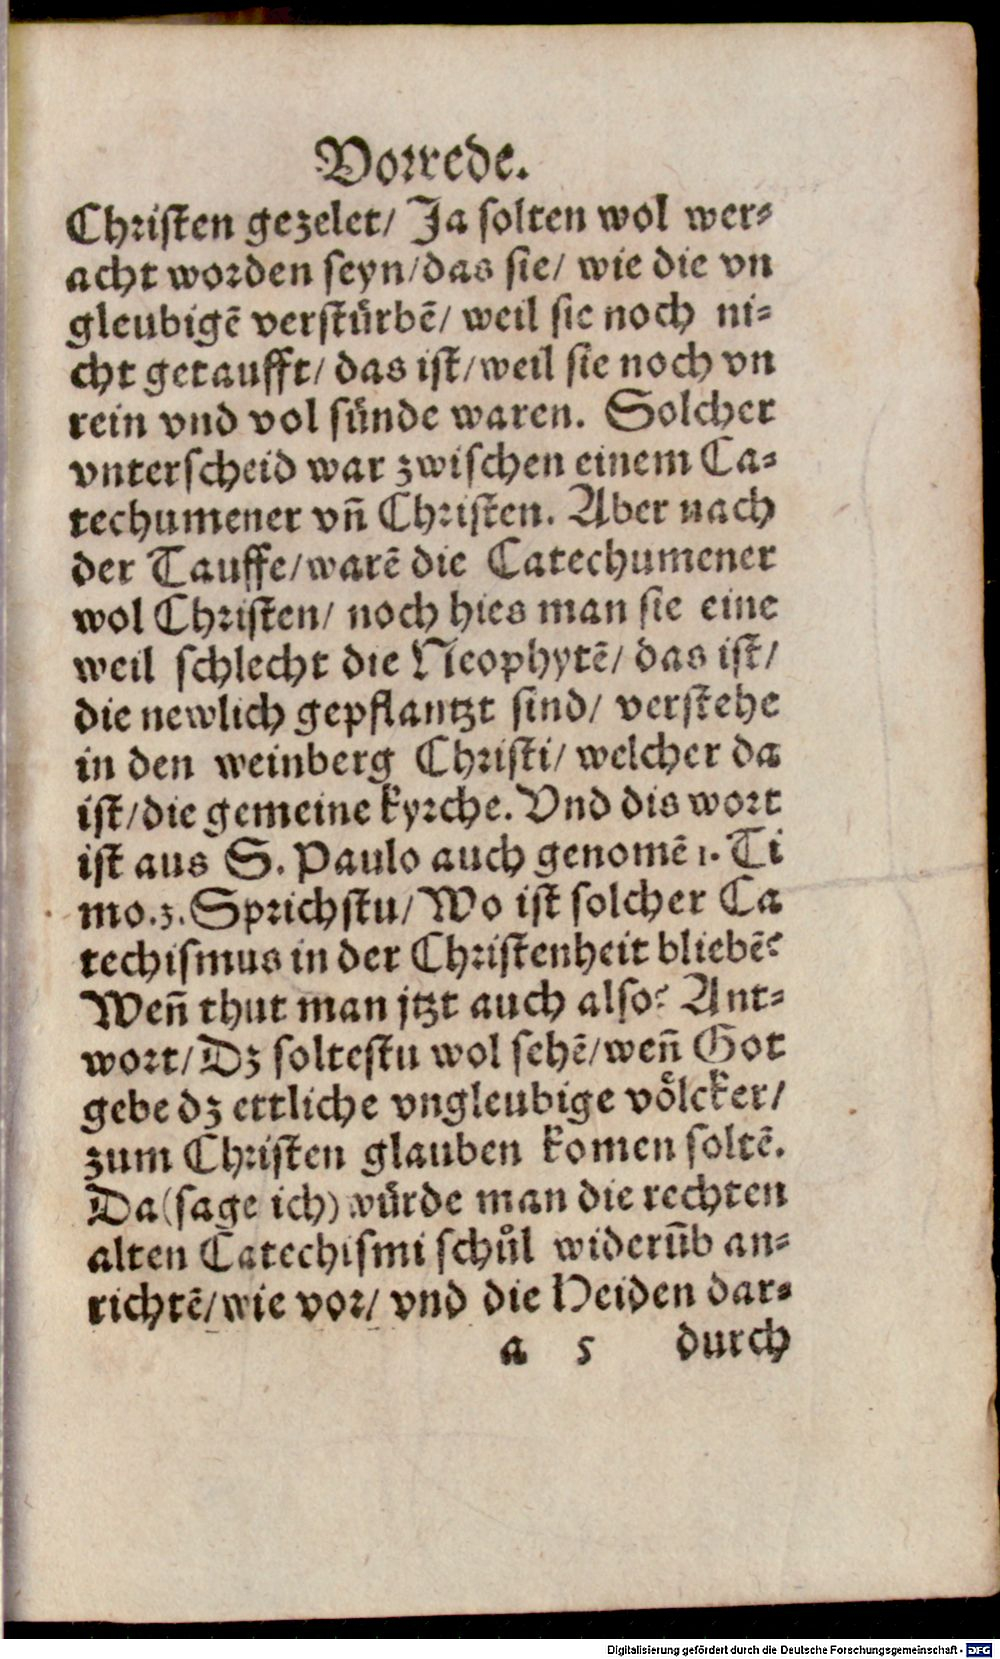 Vorrede.
Christen gezelet/ Ja solten wol wer⸗
acht worden seyn/das sie/ wie die vn
gleubigē verstürbē/ weil sie noch ni⸗
cht getaufft/ das ist/weil sie noch vn
rein vnd vol sünde waren. Solcher
vnterscheid war zwischen einem Ca⸗
techumener vn̄ Christen. Aber nach
der Tauffe/warē die Catechumener
wol Christen/ noch hies man sie eine
weil schlecht die Neophytē/ das ist/
die newlich gepflantzt sind/ verstehe
in den weinberg Christi/ welcher da
ist/die gemeine kyrche. Vnd dis wort
ist aus S. Paulo auch genomē 1. Ti
mo.3. Sprichstu/ Wo ist solcher Ca
techismus in der Christenheit bliebē?
Wen̄ thut man jtzt auch also? Ant⸗
wort/ Dz soltestu wol sehē/wen̄ Got
gebe dz ettliche vngleubige völcker/
zum Christen glauben komen soltē.
Da(sage ich) würde man die rechten
alten Catechismi schůl widerūb an⸗
richtē/wie vor/ vnd die Heiden dar⸗
a 5 durch
Digitalisierung gefördert durch die Deutsche Forschungsgemeinschaft - DFG